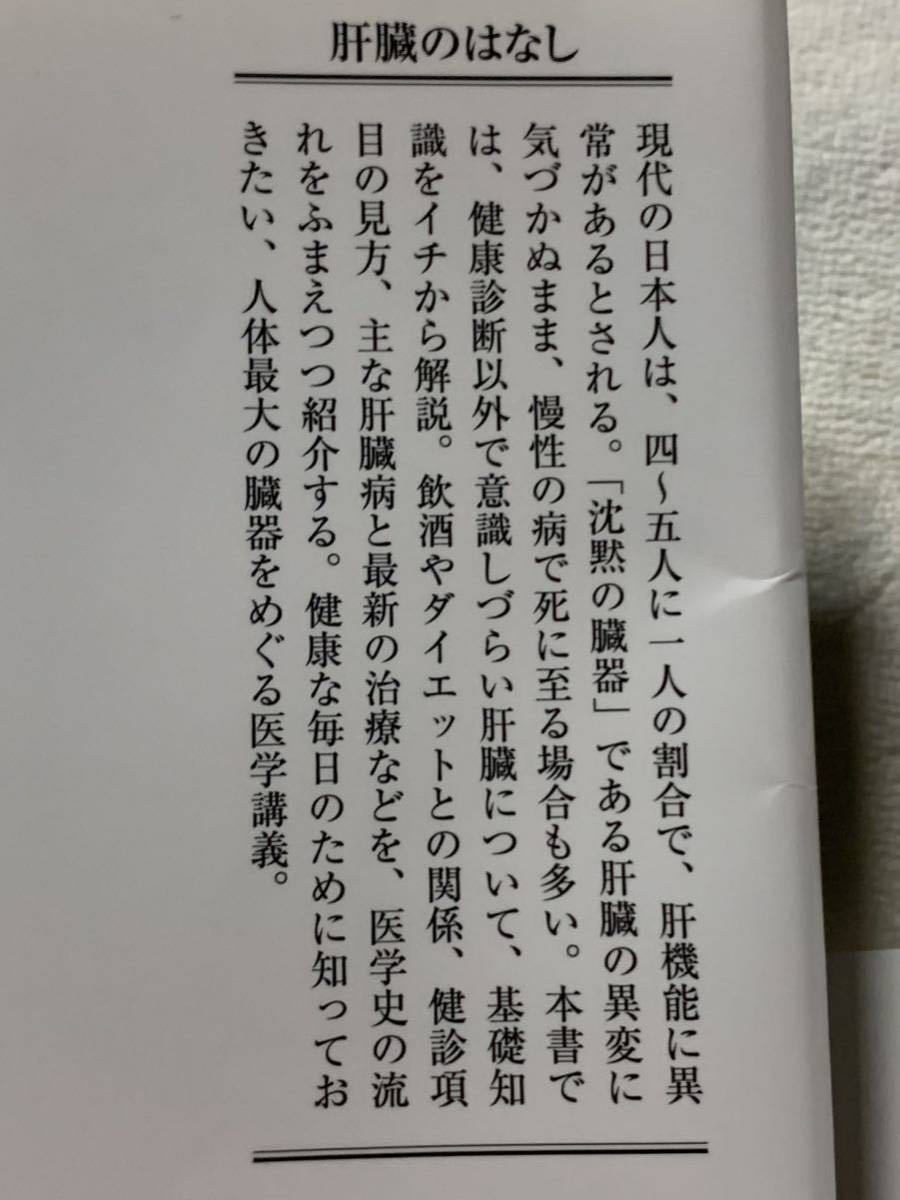 肝臓のはなし
現代の日本人は、四〜五人に一人の割合で、肝機能に異
常があるとされる。「沈黙の臓器」である肝臓の異変に
気づかぬまま、慢性の病で死に至る場合も多い。本書で
は、健康診断以外で意識しづらい肝臓について、基礎知
識をイチから解説。飲酒やダイエットとの関係、健診項
目の見方、主な肝臓病と最新の治療などを、医学史の流
れをふまえつつ紹介する。健康な毎日のために知ってお
きたい、人体最大の臓器をめぐる医学講義。